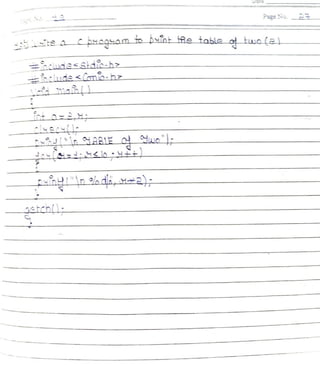 Page No. 27
Write a C program to print the table of two (2)
#include<stdio.h>
#include<conio.h>
void main()
{
int a=2,
clrscr();
printf("\n TABLE of Two");
{
printf("\n %d
}
getch();
}